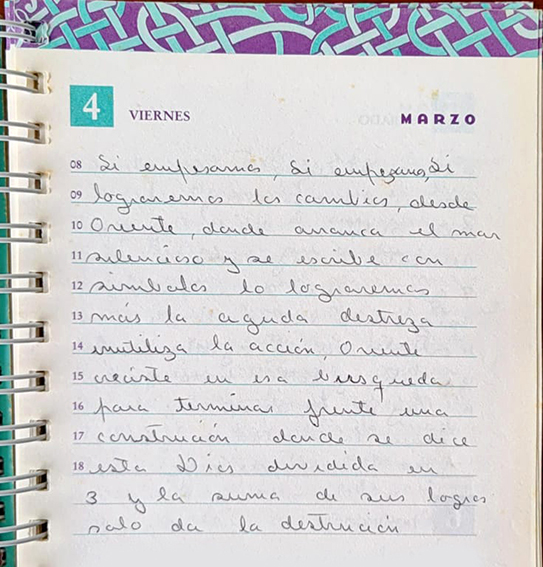 4 VIERNES MARZO
08 Si empesamos, Si empezamos, Si
09 lograremos los cambios, desde
10 Oriente, donde arranca el mar
11 silencioso y se escribe con
12 simbolos lo lograremos
13 más la aguda destreza
14 inutiliza la acción, Oriente
15 creciste en esa busqueda
16 para terminar frente una
17 construción donde se dice
18 esta Dios dividida en
3 y la suma de sus logros
solo da la destrucción